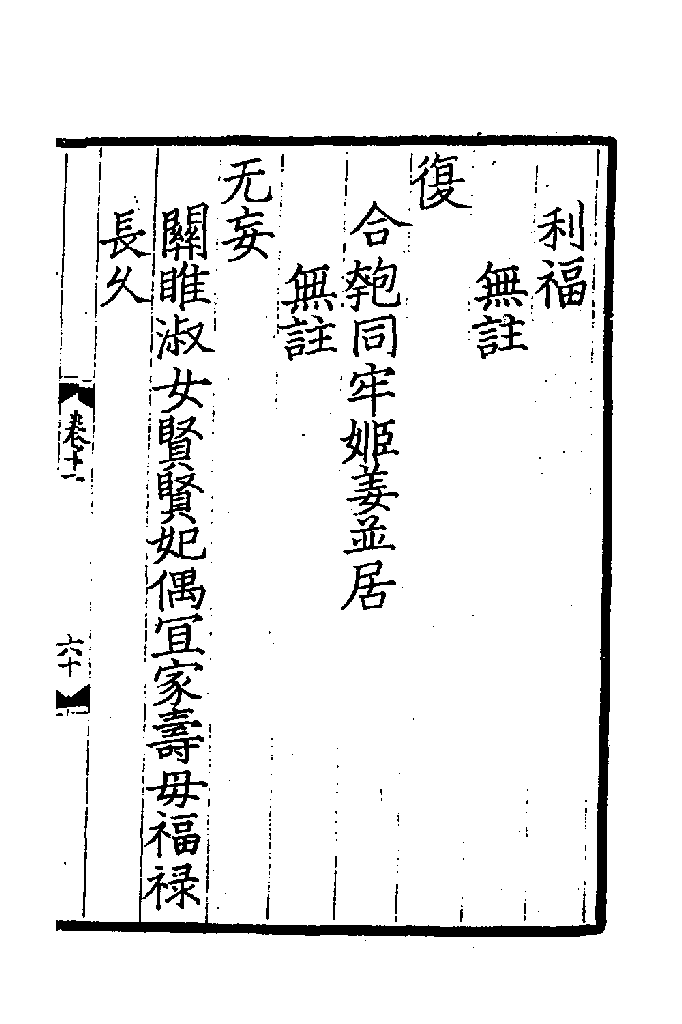 利福
無註
復
合匏同牢姬姜並居
無註
无妄
關睢淑女賢賢妃偶冝家壽母福禄
長乆
卷十一
六十